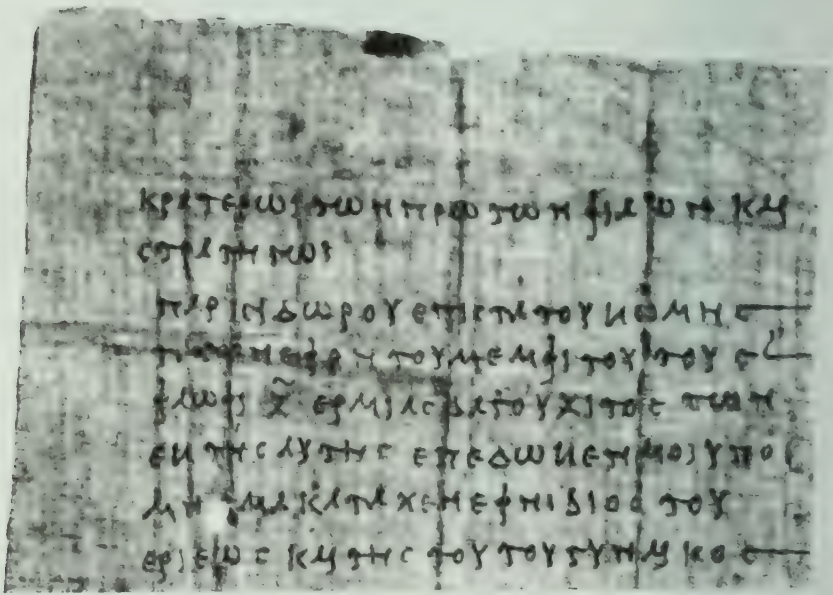 κρατερωι των πρωτων φιλων και
στρατηγωι
επιστατου κωμης
του μεμφιτου του
φαωφι ερμιας των
εκ της αυτης επεδωκεν μοι υπο
μνημα κατα χενεφνιβιος του
εριεως και της τουτου γυναικος